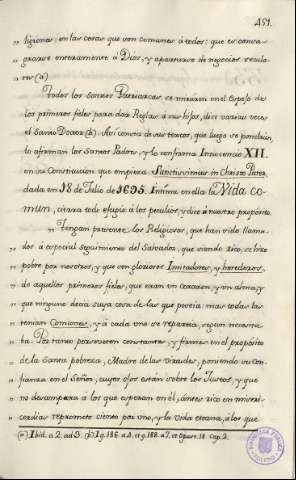 451.
" ligiones: en las cosas que son comunes à todos: que es consa-
" grarse enteramente à Dios, y apartarse de negocios secula-
" res (a)
Todos los Santos Patriarcas se miraron en el Espejo de
los primeros fieles para dar Reglas à sus hijos, dice varias veces
el Santo Doctor (b) Asi consta de sus textos, que luego se pondràn,
lo afirman los Santos Padres, y lo confirma Innocencio XII.
en su Constitucion que empieza Sanctissimus in Christo Pater
dada en 18 de Julio de 1695. Intima en ella la Vida co-
mun, cierra todo efugio à los peculios, y dice à nuestro proposito.
" Tengan presente, los Religiosos, que han sido llama-
" dos à especial seguimiento del Salvador, que siendo rico, se hizo
" pobre por nosotros, y que son gloriosos Imitadores, y herederos,
" de aquellos primeros fieles, que eran un corazon, y un alma, y
" que ninguno decia suya cosa de las que poseia; mas todas las
" tenian Comunes, y à cada uno se repartia, segun necesita-
" ba. Por tanto perseveren constantes, y firmes en el proposito
" de la Santa pobreza, Madre de las virtudes, poniendo su con-
" fianza en el Señor, cuyos ojos están sobre los Justos, y que
" no desampara à los que esperan en él, àntes rico en miseri-
" cordias repromete ciento por uno, y la vida eterna, à los que
(a) Ibid. a. 2. ad 3. (b) 1 q. 186. a. 3. et q. 188. a. 7. et Opusc. 18. Cap. 2.